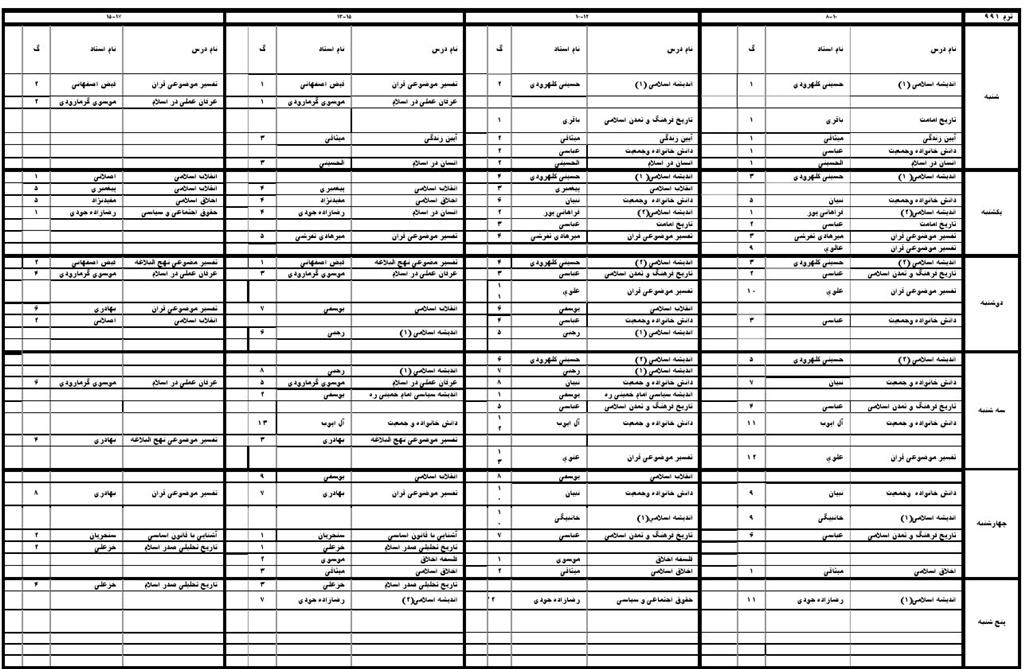 ترم ۹۹۱ ۸-۱۰ ۱۰-۱۲ ۱۳-۱۵ ۱۵-۱۷
نام درس نام استاد گ نام درس نام استاد گ نام درس نام استاد گ نام درس نام استاد گ
شنبه
اندیشه اسلامی (۱) حسینی کلهرودی ۱ اندیشه اسلامی (۱) حسینی کلهرودی ۲ تفسیر موضوعی قران فیض اصفهانی ۱ تفسیر موضوعی قران فیض اصفهانی ۲
عرفان عملی در اسلام موسوی گرمارودی ۱ عرفان عملی در اسلام موسوی گرمارودی ۲
تاریخ امامت باقری ۱ تاریخ فرهنگ و تمدن اسلامی باقری ۱
آیین زندگی میثاقی ۱ آیین زندگی میثاقی ۲ آیین زندگی میثاقی ۳
دانش خانواده وجمعیت عباسی ۱ دانش خانواده وجمعیت عباسی ۲
انسان در اسلام الحسینی ۱ انسان در اسلام الحسینی ۲ انسان در اسلام الحسینی ۳
یکشنبه
اندیشه اسلامی (۱) حسینی کلهرودی ۳ اندیشه اسلامی (۱) حسینی کلهرودی ۴ انقلاب اسلامی اصلانی ۱
انقلاب اسلامی پیغمبری ۳ انقلاب اسلامی پیغمبری ۴ انقلاب اسلامی پیغمبری ۵
دانش خانواده وجمعیت نبیان ۵ دانش خانواده وجمعیت نبیان ۶ اخلاق اسلامی مفیدنژاد ۴ اخلاق اسلامی مفیدنژاد ۵
اندیشه اسلامی(۲) فراهانی پور ۱ اندیشه اسلامی(۲) فراهانی پور ۲ انسان در اسلام رضازاده جودی ۴ حقوق اجتماعی و سیاسی رضازاده جودی ۱
تاریخ امامت عباسی ۲ تاریخ امامت عباسی ۳
تفسیر موضوعی قران میرهادی تفرشی ۳ تفسیر موضوعی قران میرهادی تفرشی ۴ تفسیر موضوعی قران میرهادی تفرشی ۵
تفسیر موضوعی قران علوی ۹
دوشنبه
اندیشه اسلامی (۲) حسینی کلهرودی ۳ اندیشه اسلامی (۲) حسینی کلهرودی ۴ تفسیر موضوعی نهج البلاغه فیض اصفهانی ۱ تفسیر موضوعی نهج البلاغه فیض اصفهانی ۲
تاریخ فرهنگ و تمدن اسلامی عباسی ۲ تاریخ فرهنگ و تمدن اسلامی عباسی ۳ عرفان عملی در اسلام موسوی گرمارودی ۳ عرفان عملی در اسلام موسوی گرمارودی ۴
تفسیر موضوعی قران علوی ۱۰ تفسیر موضوعی قران علوی ۱۱
انقلاب اسلامی یوسفی ۶ انقلاب اسلامی یوسفی ۷ تفسیر موضوعی قران بهادری ۶
دانش خانواده وجمعیت عباسی ۳ دانش خانواده وجمعیت عباسی ۴ انقلاب اسلامی اصلانی ۲
اندیشه اسلامی (۱) رجبی ۵ اندیشه اسلامی (۱) رجبی ۶
سه شنبه
اندیشه اسلامی (۲) حسینی کلهرودی ۵ اندیشه اسلامی (۲) حسینی کلهرودی ۶
اندیشه اسلامی (۱) رجبی ۷ اندیشه اسلامی (۱) رجبی ۸
دانش خانواده و جمعیت نبیان ۷ دانش خانواده و جمعیت نبیان ۸ عرفان عملی در اسلام موسوی گرمارودی ۵ عرفان عملی در اسلام موسوی گرمارودی ۶
اندیشه سیاسی امام خمینی ره یوسفی ۱ اندیشه سیاسی امام خمینی ره یوسفی ۲
تاریخ فرهنگ و تمدن اسلامی عباسی ۴ تاریخ فرهنگ و تمدن اسلامی عباسی ۵
دانش خانواده و جمعیت آل ایوب ۱۱ دانش خانواده و جمعیت آل ایوب ۱۲ دانش خانواده و جمعیت آل ایوب ۱۳
تفسیر موضوعی نهج البلاغه بهادری ۳ تفسیر موضوعی نهج البلاغه بهادری ۴
تفسیر موضوعی قران علوی ۱۲ تفسیر موضوعی قران علوی ۱۳
چهارشنبه
انقلاب اسلامی یوسفی ۸ انقلاب اسلامی یوسفی ۹
دانش خانواده وجمعیت نبیان ۹ دانش خانواده وجمعیت نبیان ۱۰ تفسیر موضوعی قران بهادری ۷ تفسیر موضوعی قران بهادری ۸
اندیشه اسلامی(۱) خانبیگی ۹ اندیشه اسلامی(۱) خانبیگی ۱۰
تاریخ فرهنگ و تمدن اسلامی عباسی ۶ تاریخ فرهنگ و تمدن اسلامی عباسی ۷ آشنایی با قانون اساسی سنجریان ۱ آشنایی با قانون اساسی سنجریان ۲
تاریخ تحلیلی صدر اسلام خزعلی ۱ تاریخ تحلیلی صدر اسلام خزعلی ۲
فلسفه اخلاق موسوی ۱ فلسفه اخلاق موسوی ۲
اخلاق اسلامی میثاقی ۱ اخلاق اسلامی میثاقی ۲ اخلاق اسلامی میثاقی ۳
پنج شنبه
تاریخ تحلیلی صدر اسلام خزعلی ۳ تاریخ تحلیلی صدر اسلام خزعلی ۴
اندیشه اسلامی(۱) رضازاده جودی ۱۱ حقوق اجتماعی و سیاسی رضازاده جودی ۲ اندیشه اسلامی(۲) رضازاده جودی ۷